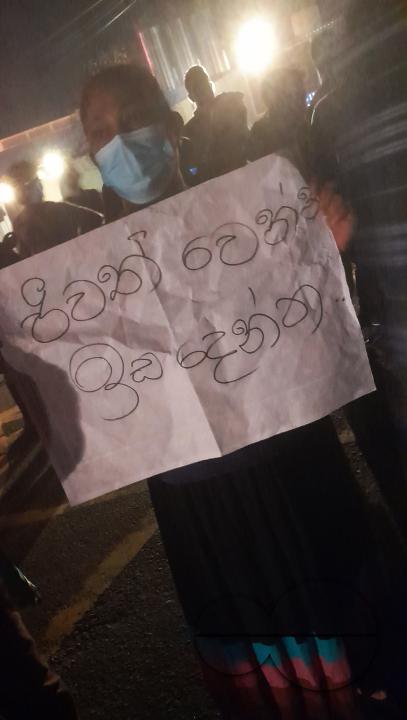 ජීවත් වෙන්න
ඉඩ දෙන්න